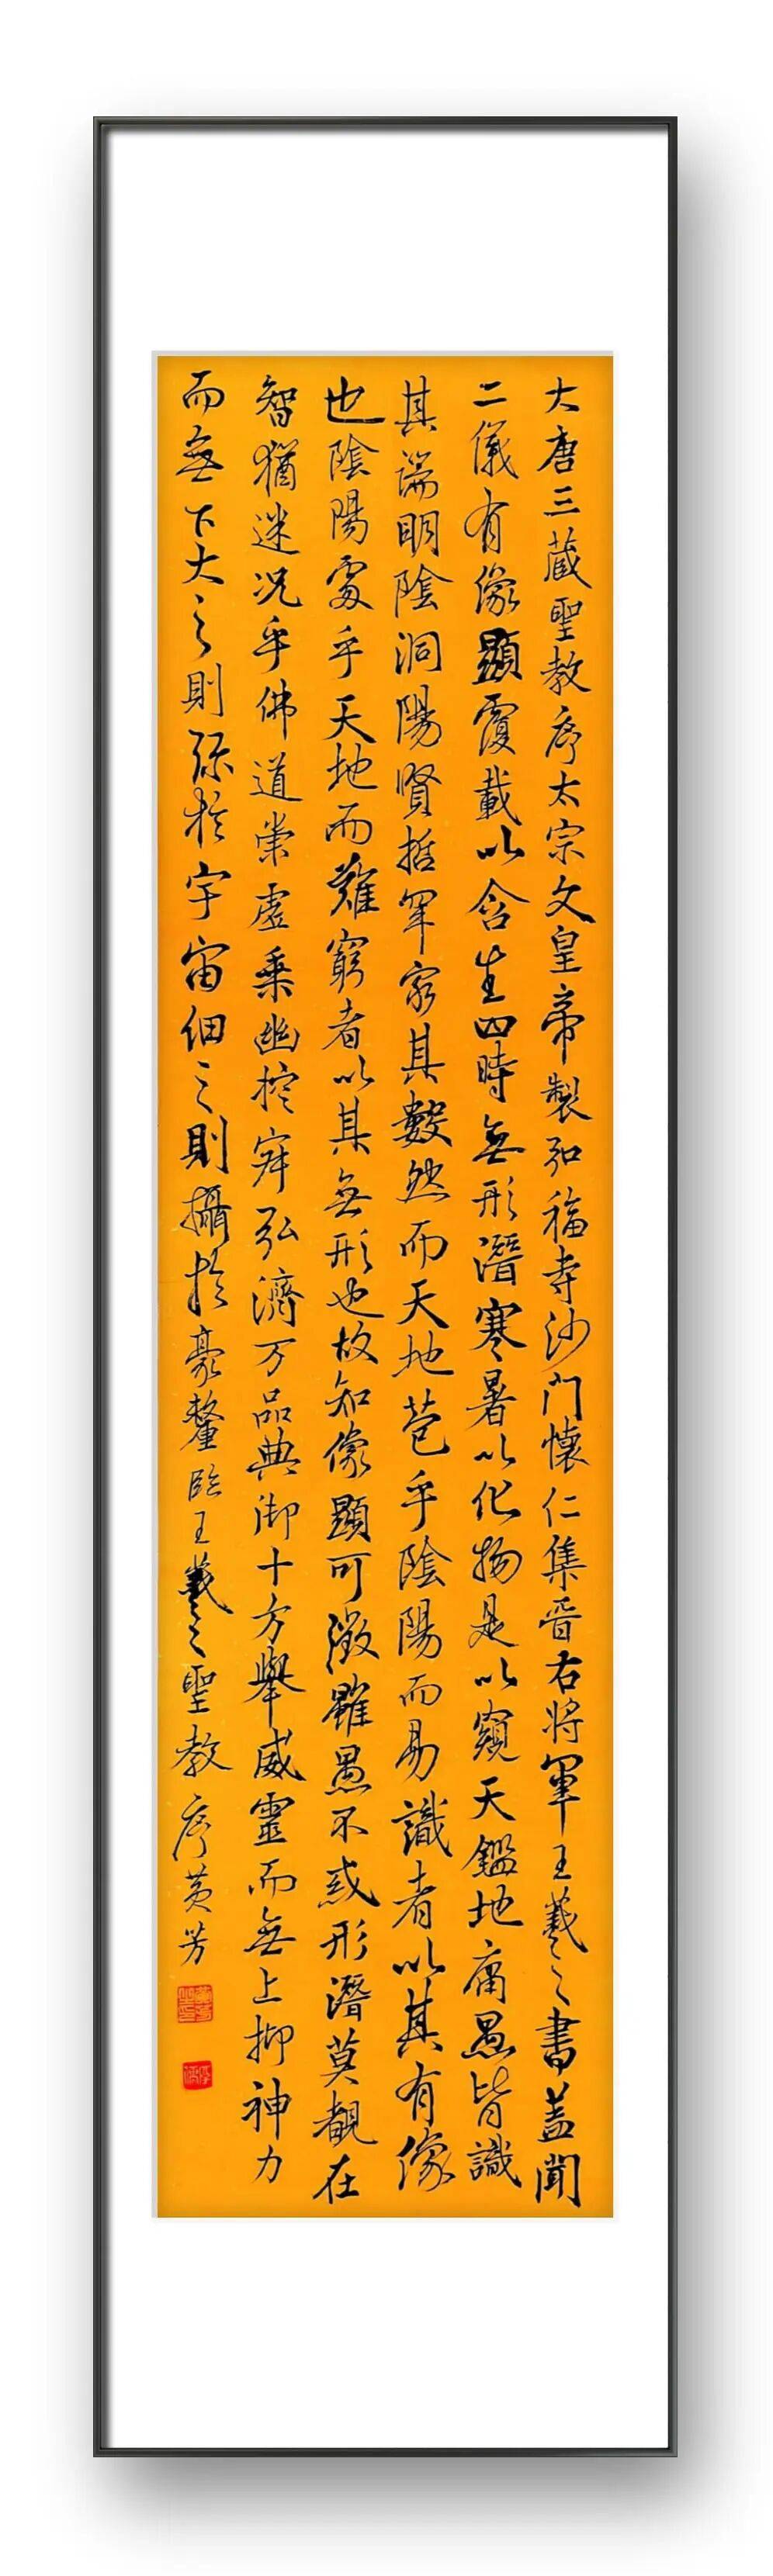 大唐三藏聖教序太宗文皇帝製弘福寺沙門懷仁集晉右將軍王羲之書蓋聞
二儀有像顯覆載以含生四時無形潛寒暑以化物是以窺天鑑地庸愚皆識
其端明陰洞陽賢哲罕窮其數然而天地苞乎陰陽而易識者以其有像
也陰陽處乎天地而難窮者以其無形也故知像顯可徵雖愚不惑形潛莫覩在
智猶迷况乎佛道崇虛乘幽控寂弘濟万品典御十方舉威靈而無上抑神力
而無下大之則彌於宇宙細之則攝於豪釐臨王羲之聖教序黃芳